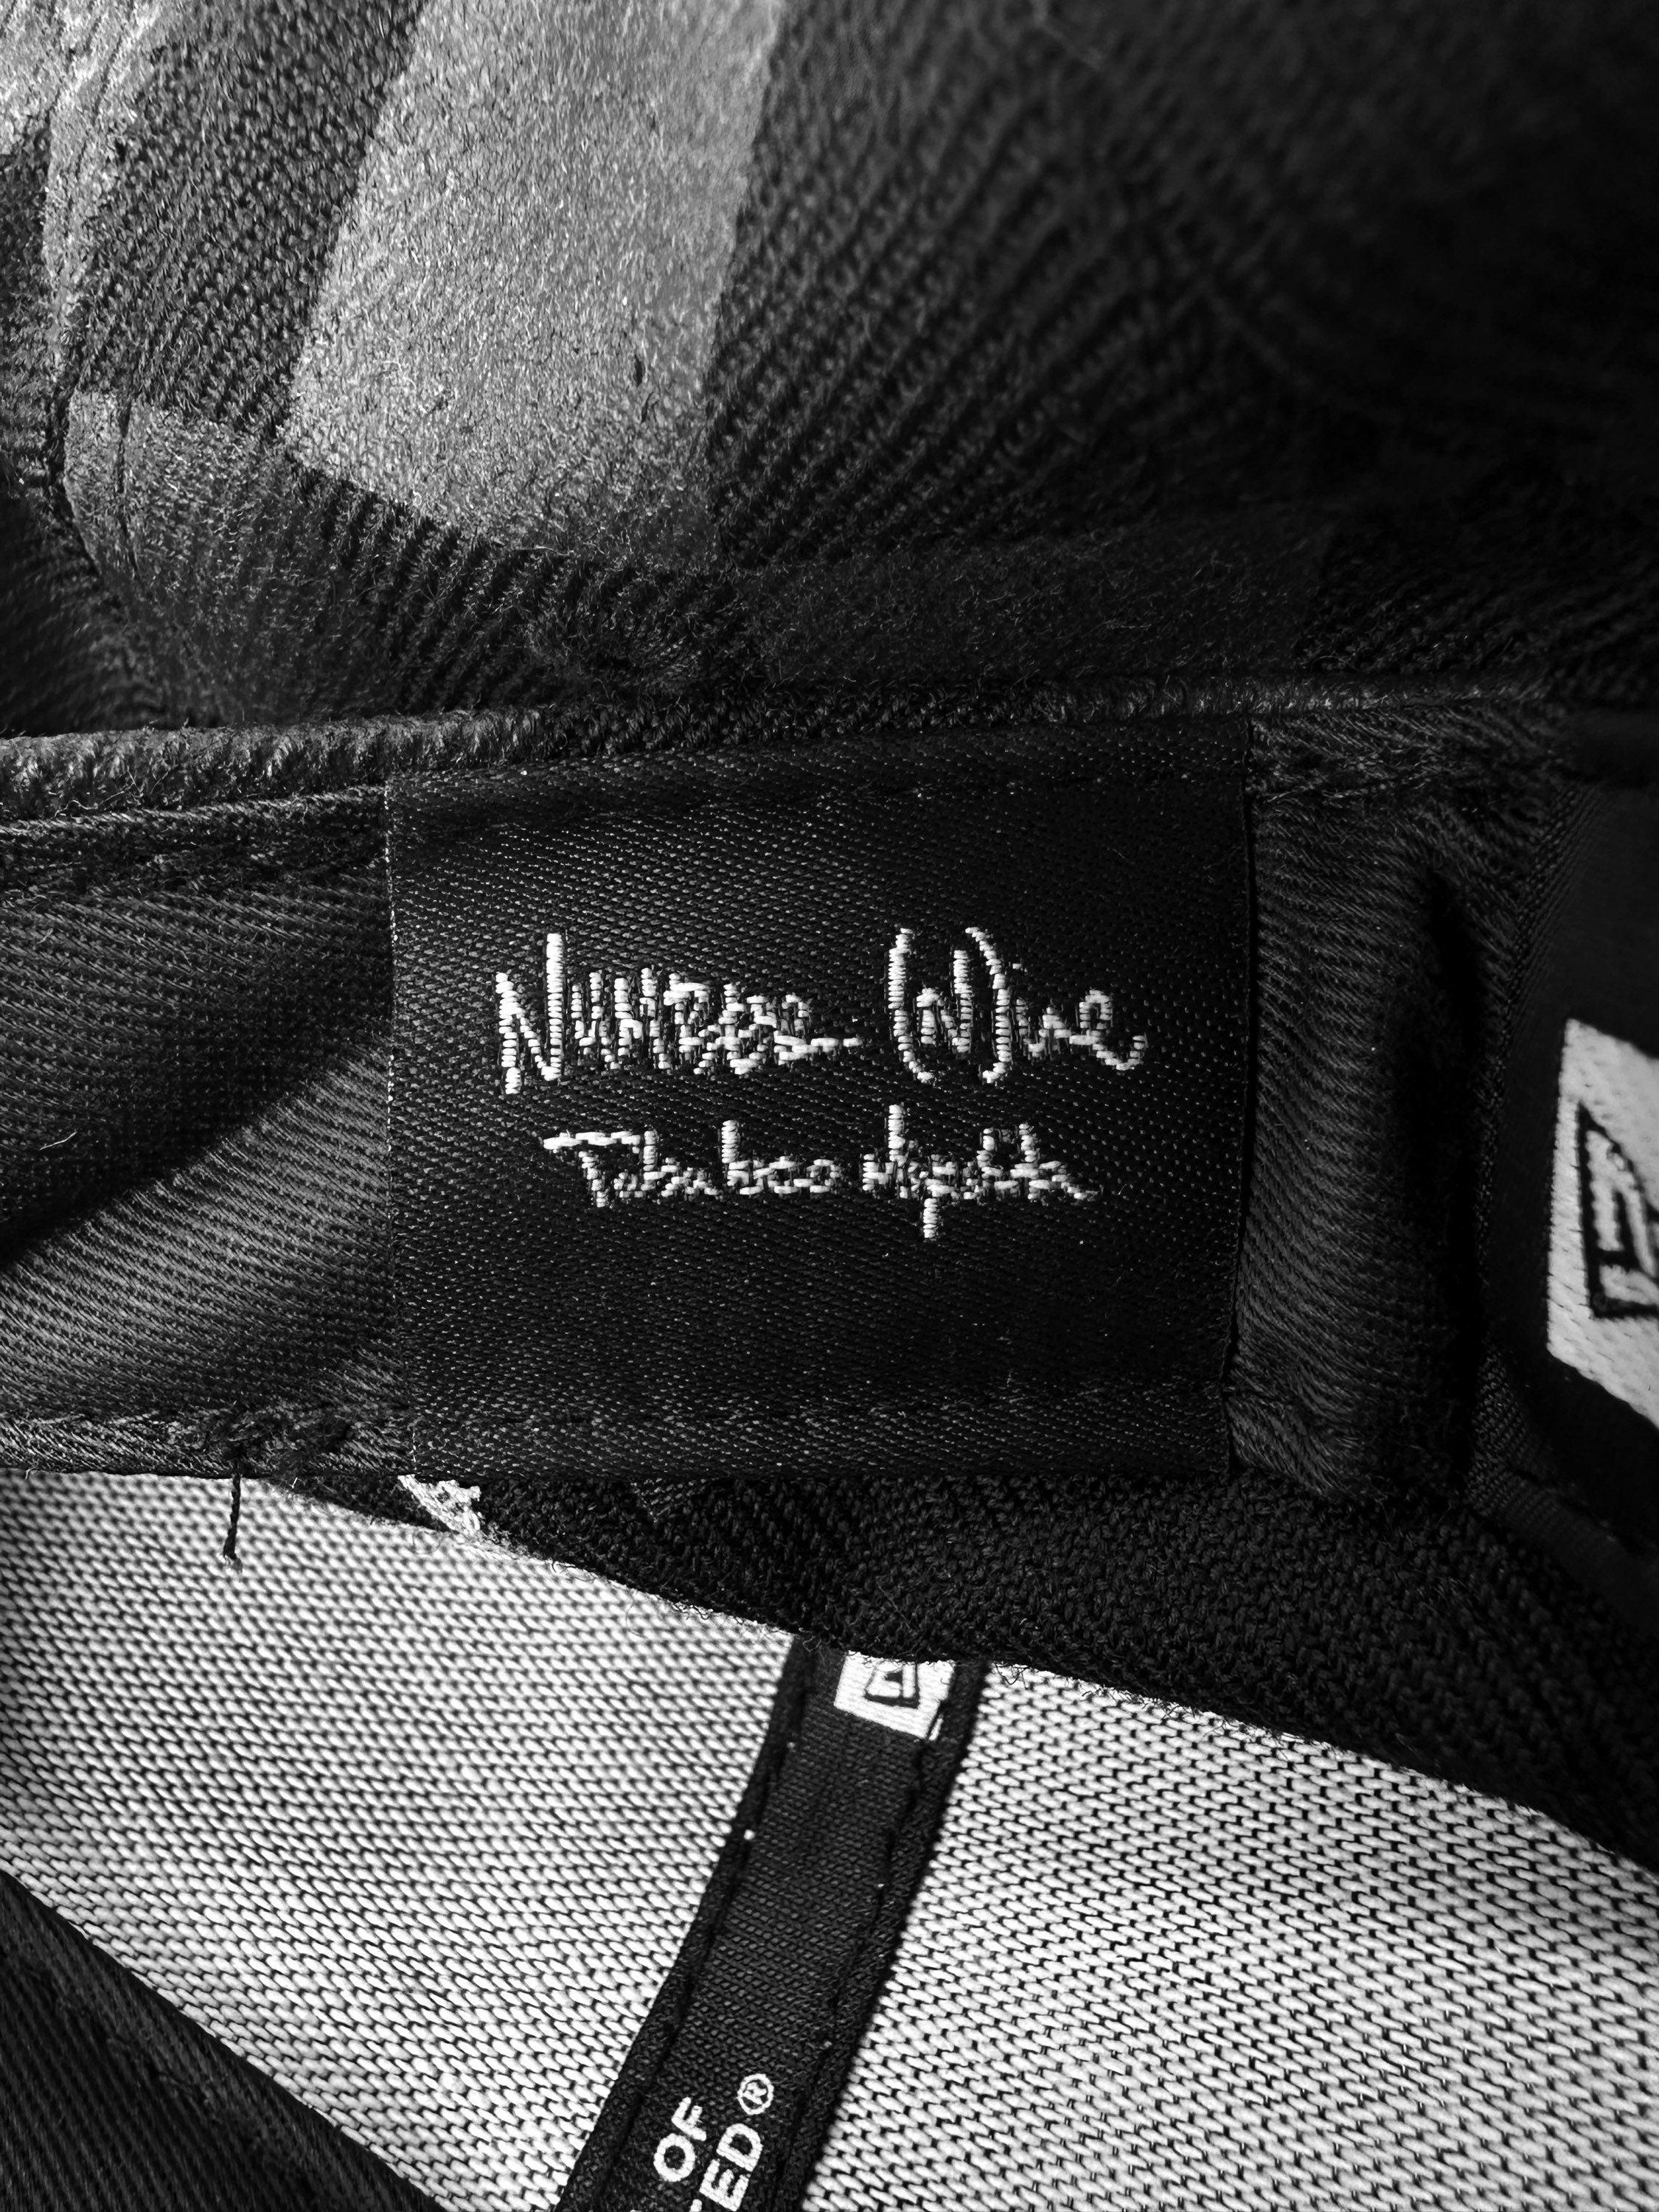 Number (N)ine
Takahiro Miyashita
OF
TED®